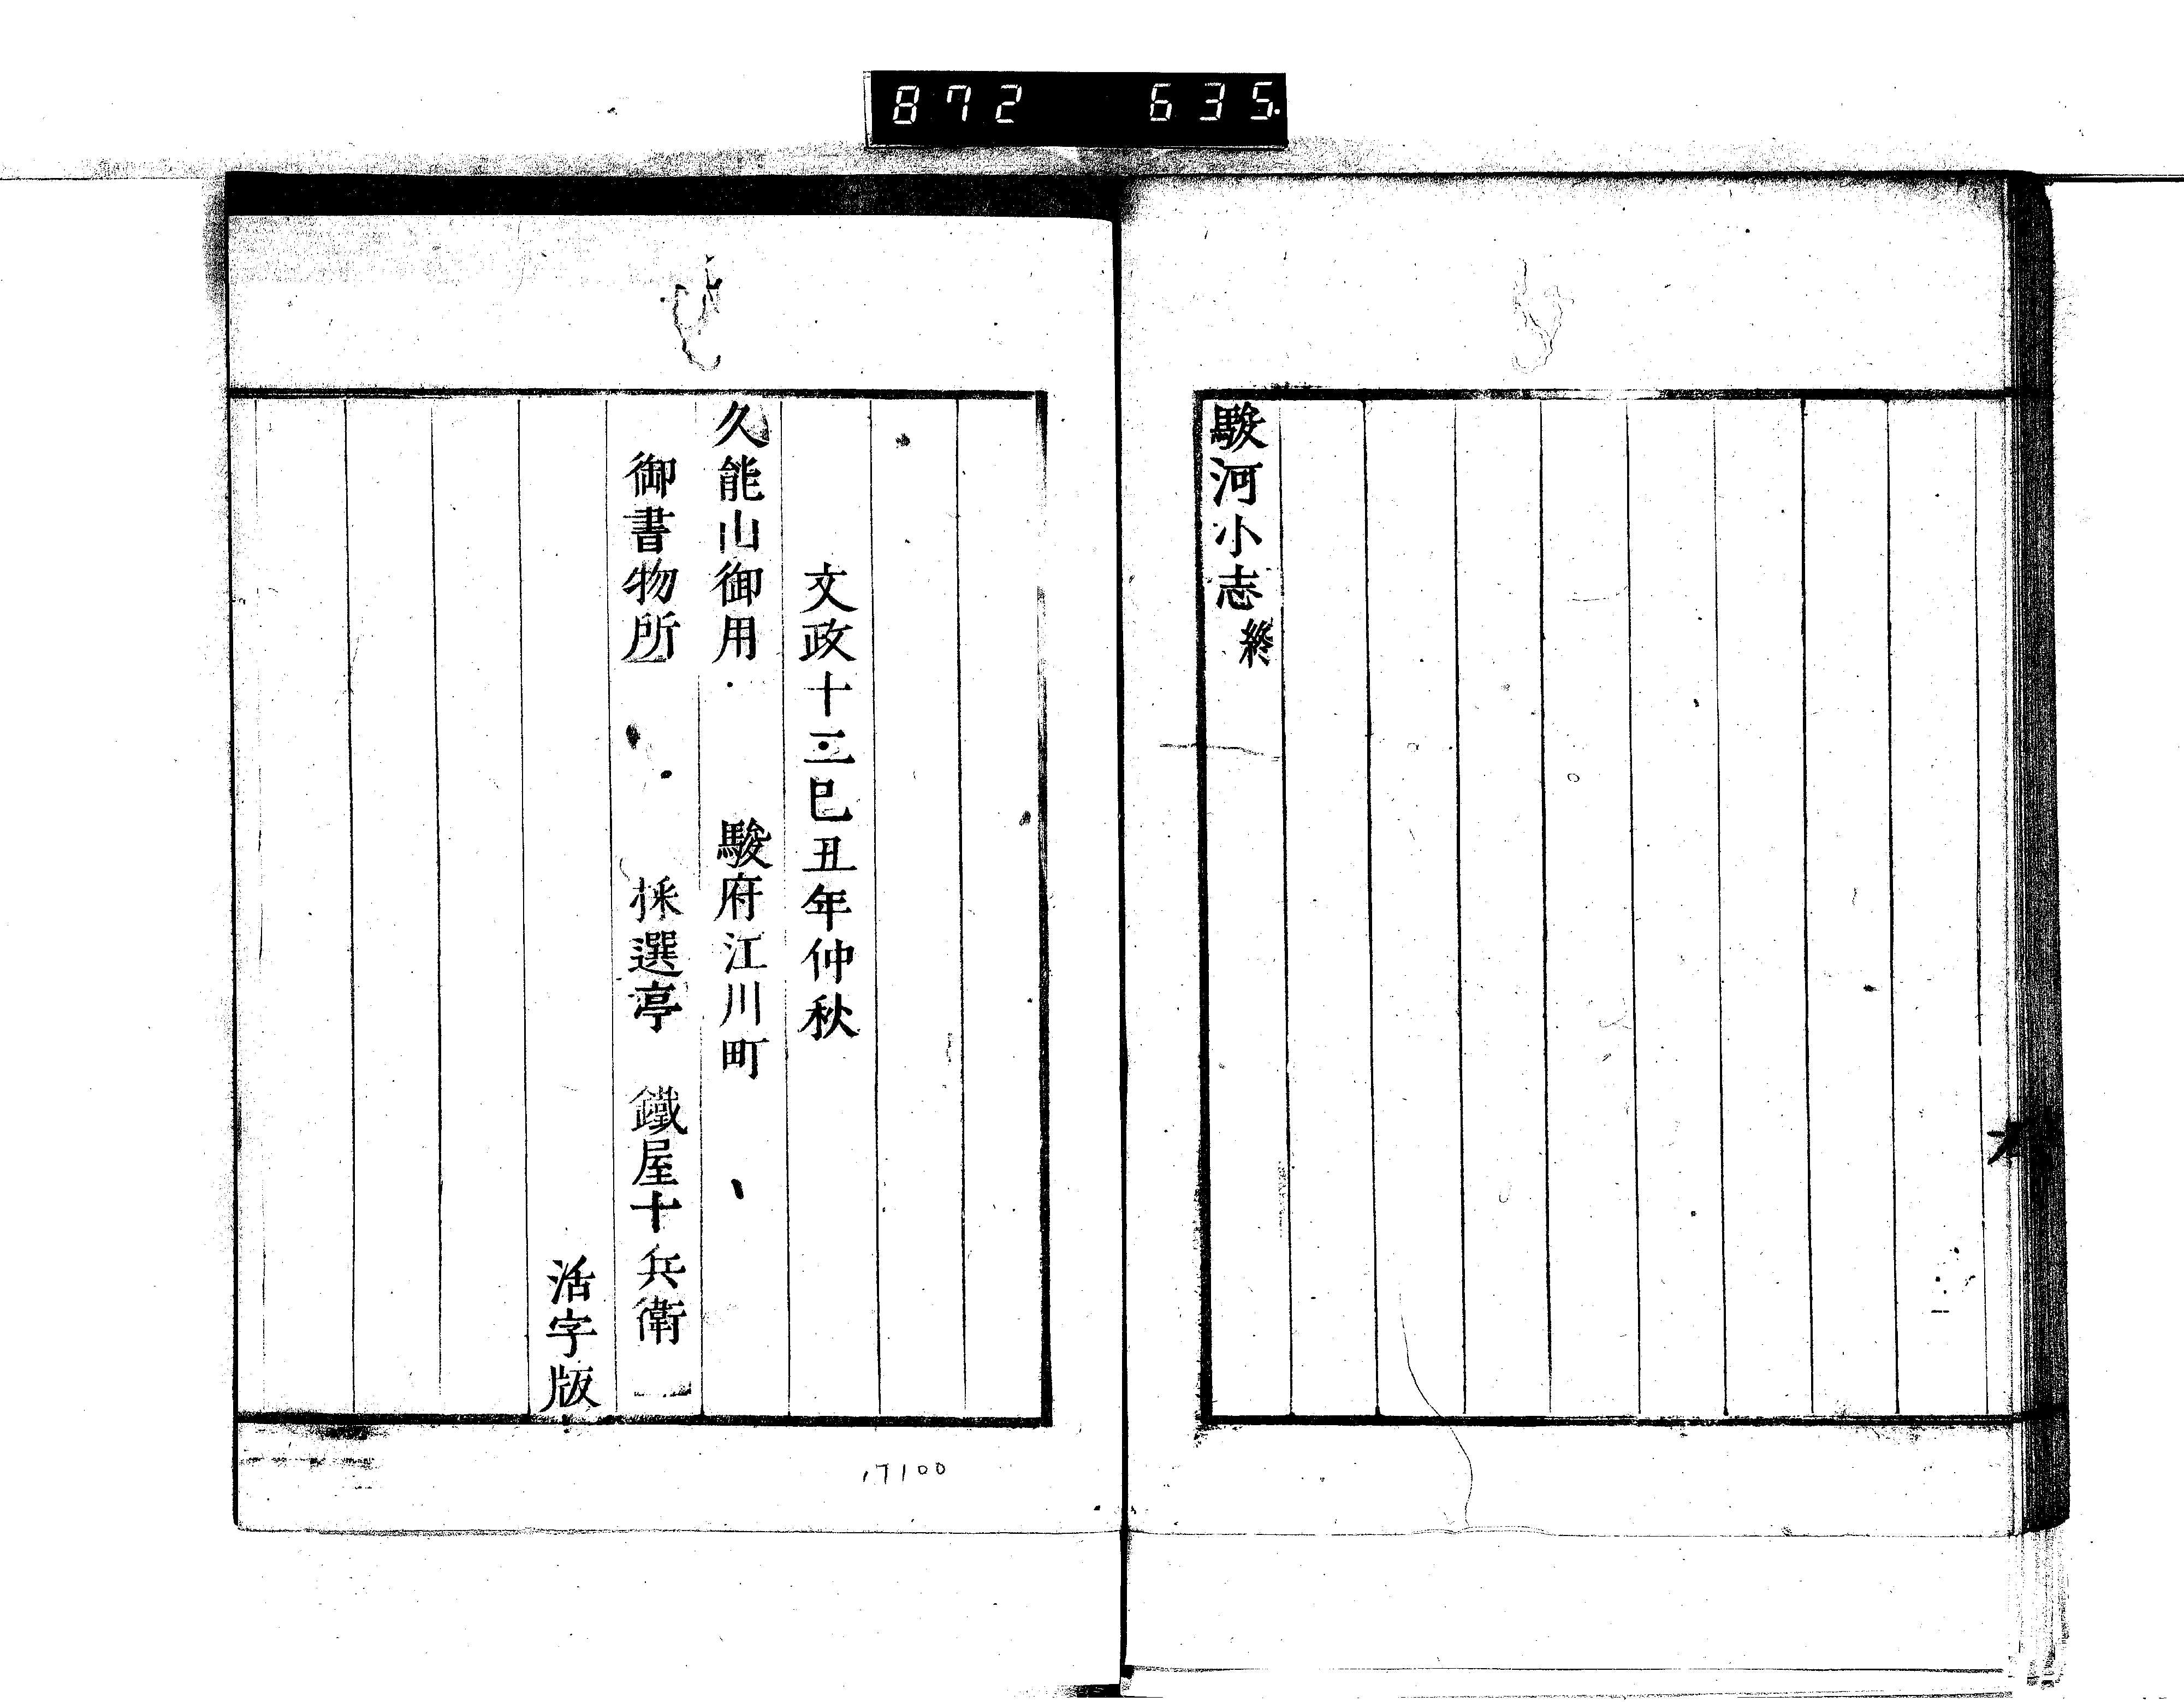 872 635
駿河小志 終
文政十二巳丑年仲秋
久能山御用 駿府江川町
御書物所 採選亭 鐵屋十兵衛
活字版
17100